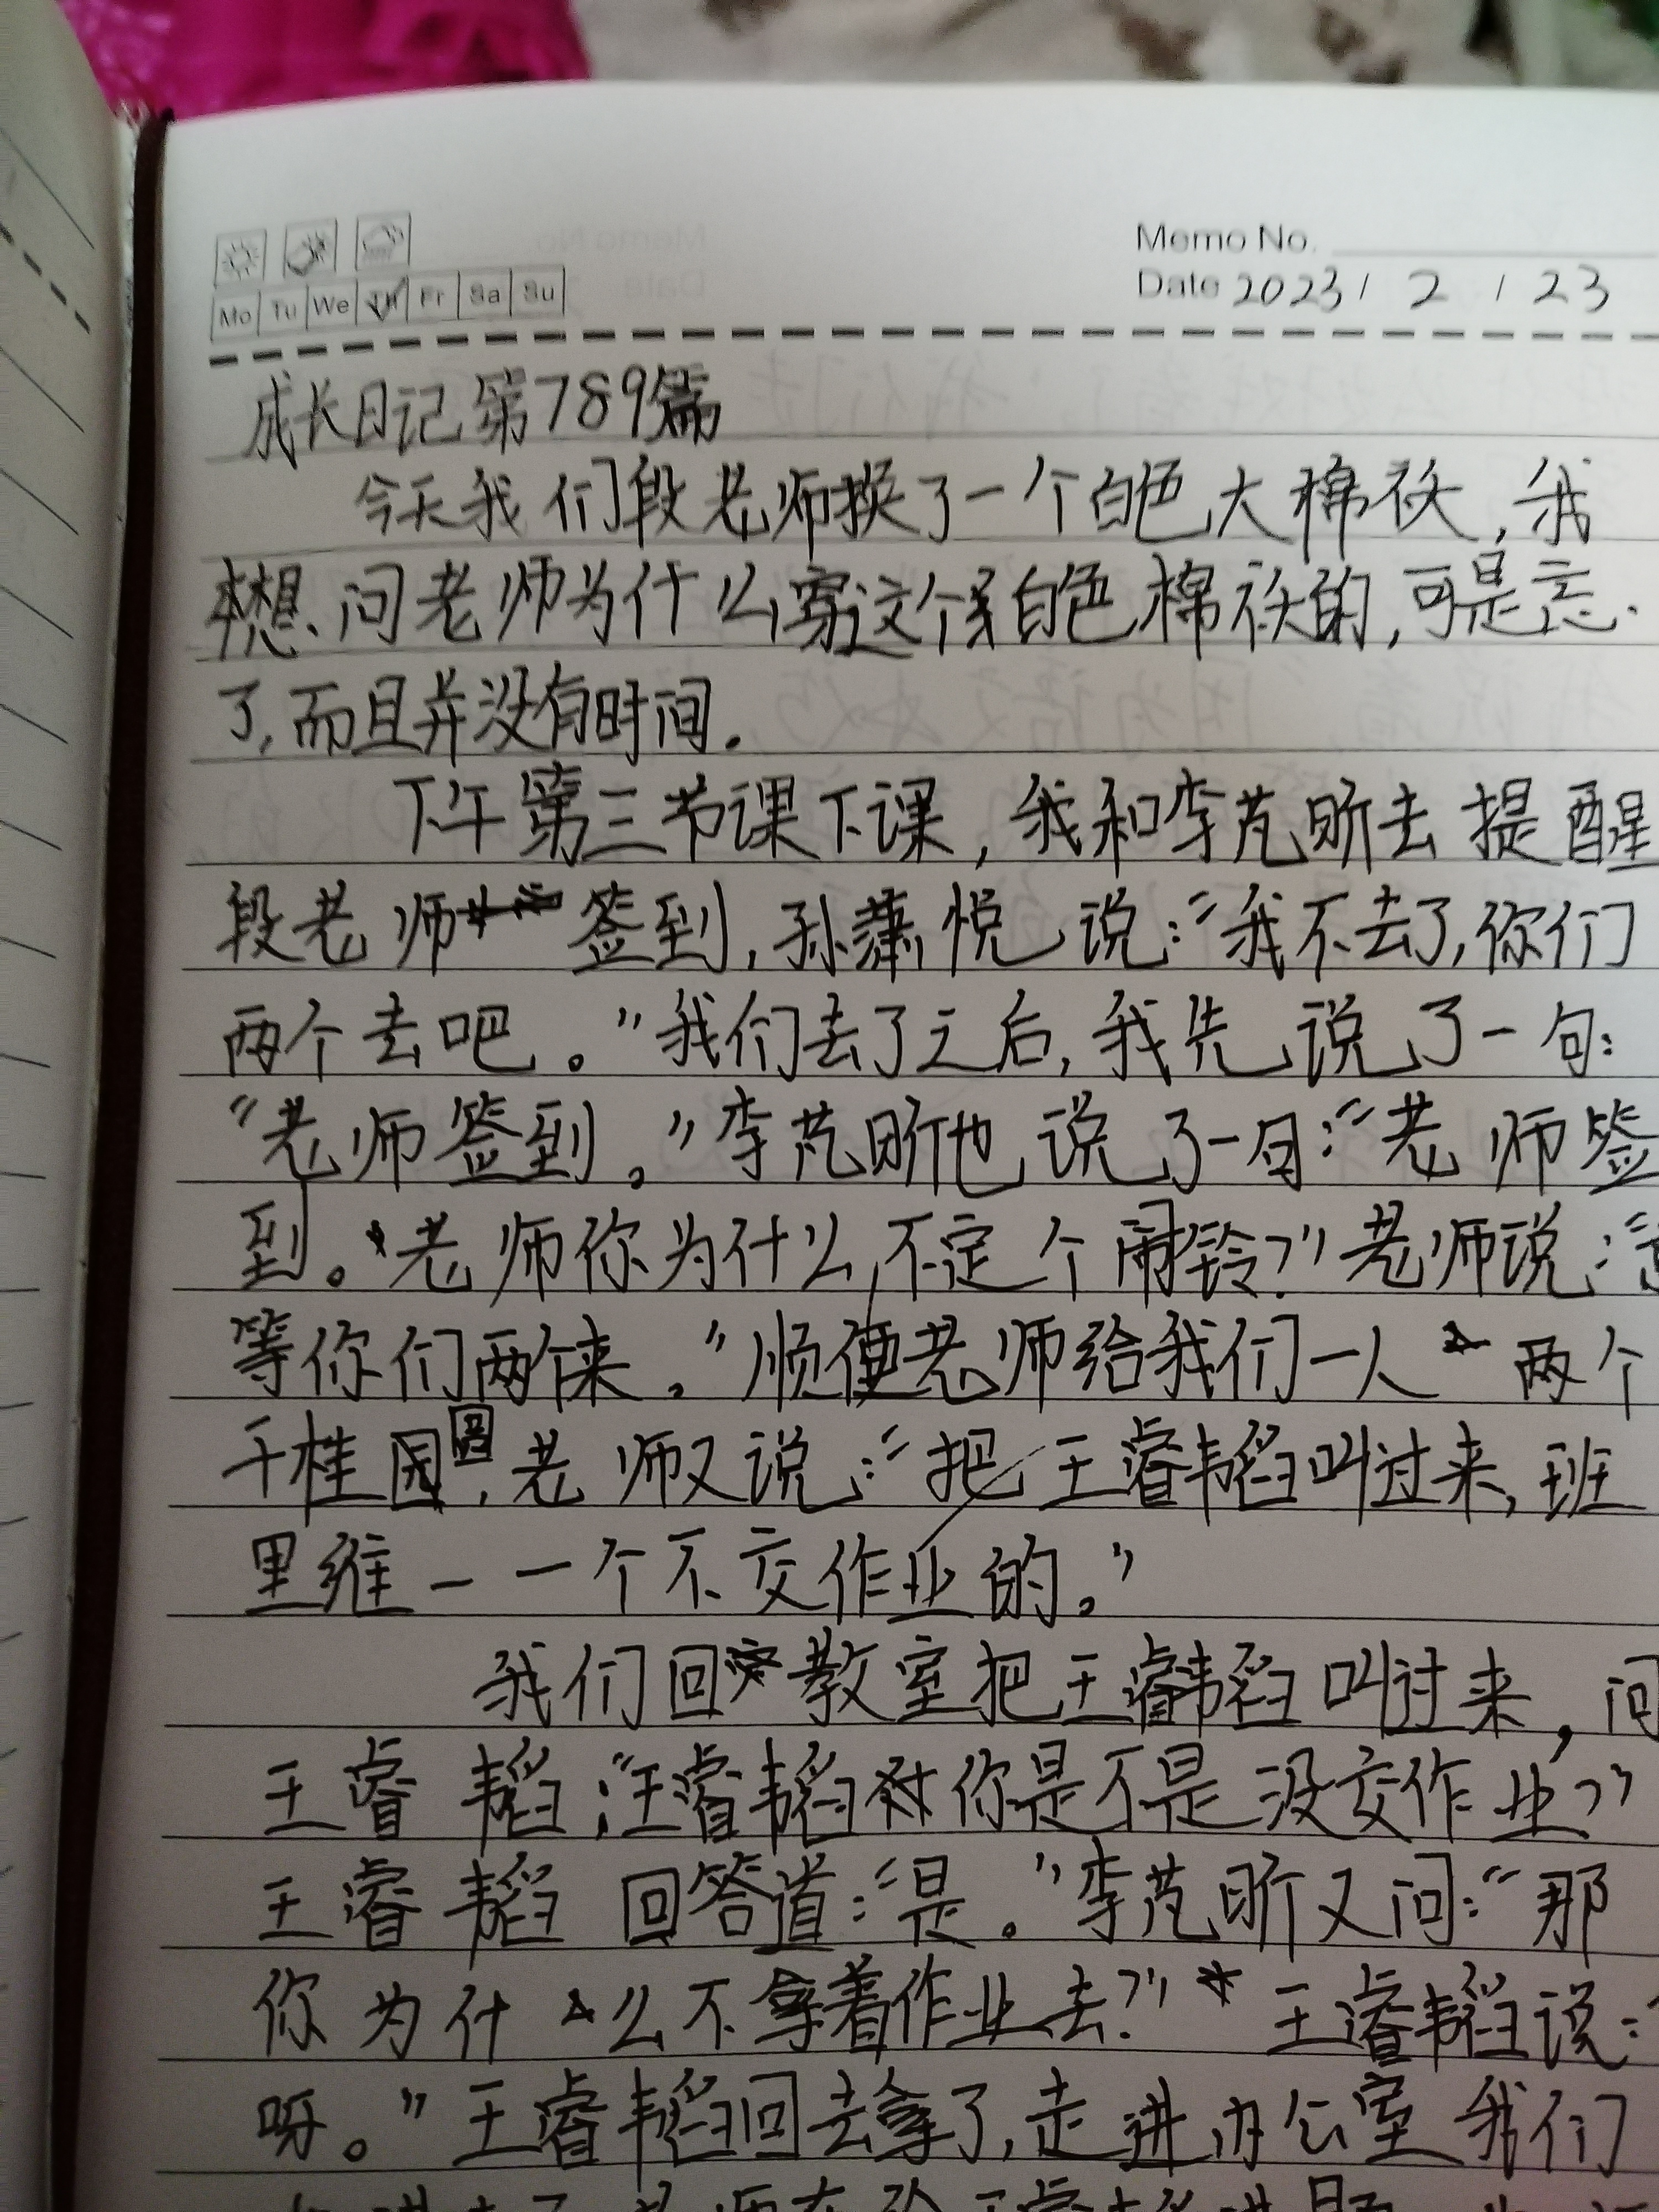 Memo No.
Mo Tu We Th Fr Sa Su
Date 2023 / 2 / 23
成长日记第789篇
今天我们段老师换了一个白色大棉袄,我
想问老师为什么穿这个白色棉袄的,可是忘
了,而且并没有时间.
下午第三节课下课,我和李芃昕去提醒
段老师签到,孙潇悦说:“我不去了,你们
两个去吧。”我们去了之后,我先说了一句:
“老师签到。”李芃昕也说了一句:“老师签
到。老师你为什么不定个闹铃?”老师说:“
等你们两个来。”顺便老师给我们一人两个
干桂圆,老师又说:“把王睿韬叫过来,班
里维一一个不交作业的。”
我们回教室把王睿韬叫过来,问
王睿韬:“王睿韬你是不是没交作业?”
王睿韬回答道:“是。”李芃昕又问:“那
你为什么不拿着作业去?”王睿韬说:“
呀。”王睿韬回去拿了,走进办公室我们